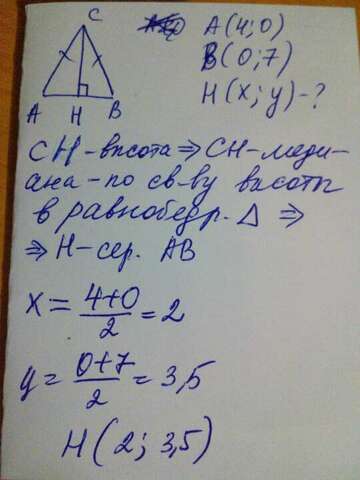 C
A(4;0)
B(0;7)
A H B
H(x;y)-?
CH-высота⇒CH-меди-
ана-по св-ву высоты
в равнобедр. Δ ⇒
⇒ H-сер. AB
x = 4+0/2 = 2
y = 0+7/2 = 3,5
H(2; 3,5)